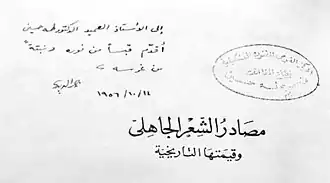 إلى الأستاذ العميد الدكتور طه حسين
أقدم قبسا من نوره ونبتة
من غرسه
١٩٥٦/١٠/١٤
مصادر الشعر الجاهلي
وقيمتها التاريخية